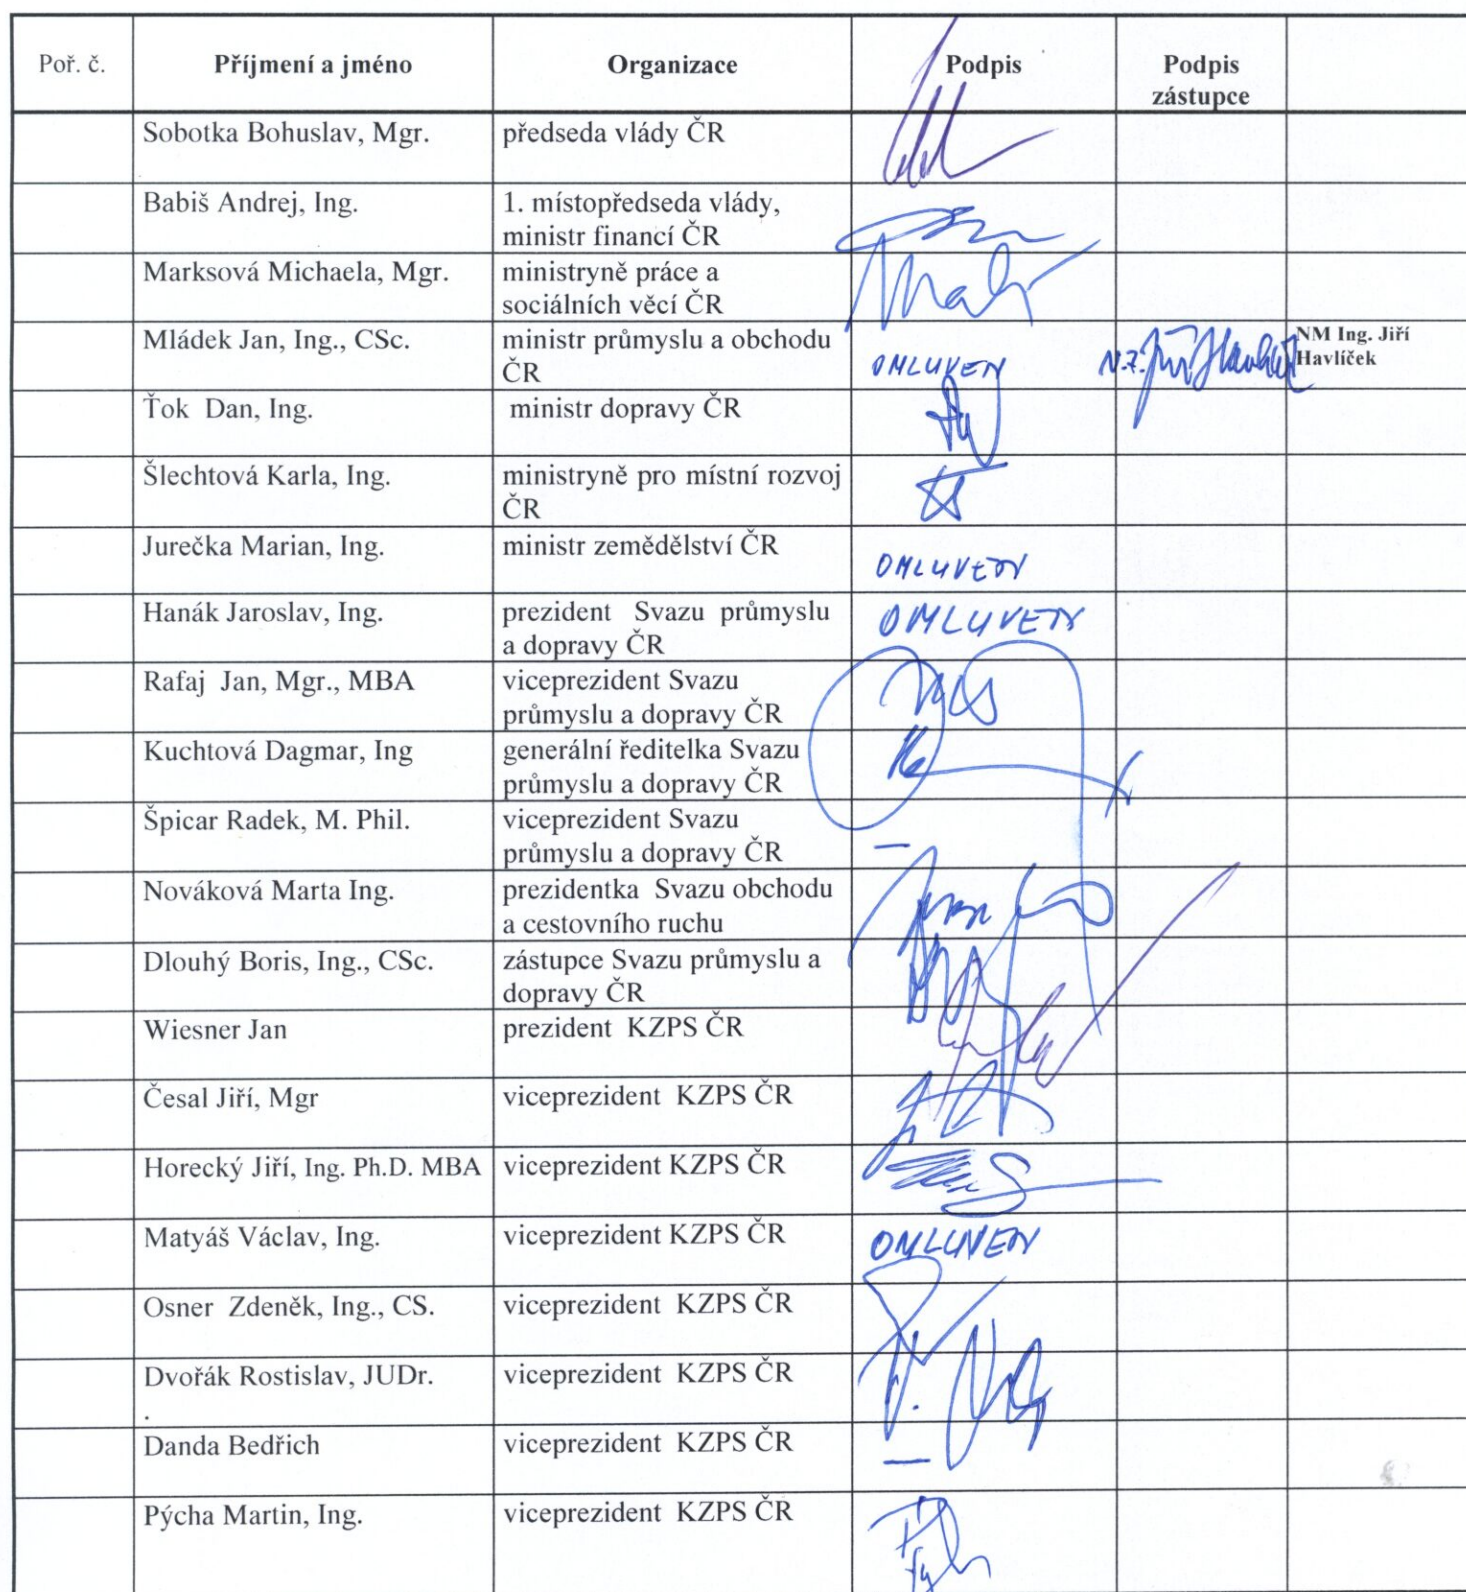 Poř. č. Příjmení a jméno Organizace Podpis Podpis
zástupce
Sobotka Bohuslav, Mgr. předseda vlády ČR
Babiš Andrej, Ing. 1. místopředseda vlády,
ministr financí ČR
Marksová Michaela, Mgr. ministryně práce a
sociálních věcí ČR
Mládek Jan, Ing., CSc. ministr průmyslu a obchodu NM Ing. Jiří
ČR OMLUVEN Havlíček
Ťok Dan, Ing. ministr dopravy ČR
Šlechtová Karla, Ing. ministryně pro místní rozvoj
ČR
Jurečka Marian, Ing. ministr zemědělství ČR
OMLUVEN
Hanák Jaroslav, Ing. prezident Svazu průmyslu OMLUVEN
a dopravy ČR
Rafaj Jan, Mgr., MBA viceprezident Svazu
průmyslu a dopravy ČR
Kuchtová Dagmar, Ing generální ředitelka Svazu
průmyslu a dopravy ČR
Špicar Radek, M. Phil. viceprezident Svazu
průmyslu a dopravy ČR —
Nováková Marta Ing. prezidentka Svazu obchodu
a cestovního ruchu
Dlouhý Boris, Ing., CSc. zástupce Svazu průmyslu a
dopravy ČR
Wiesner Jan prezident KZPS ČR
Česal Jiří, Mgr viceprezident KZPS ČR
Horecký Jiří, Ing. Ph.D. MBA viceprezident KZPS ČR
Matyáš Václav, Ing. viceprezident KZPS ČR OMLUVEN
Osner Zdeněk, Ing., CS. viceprezident KZPS ČR
Dvořák Rostislav, JUDr. viceprezident KZPS ČR
.
Danda Bedřich viceprezident KZPS ČR —
Pýcha Martin, Ing. viceprezident KZPS ČR